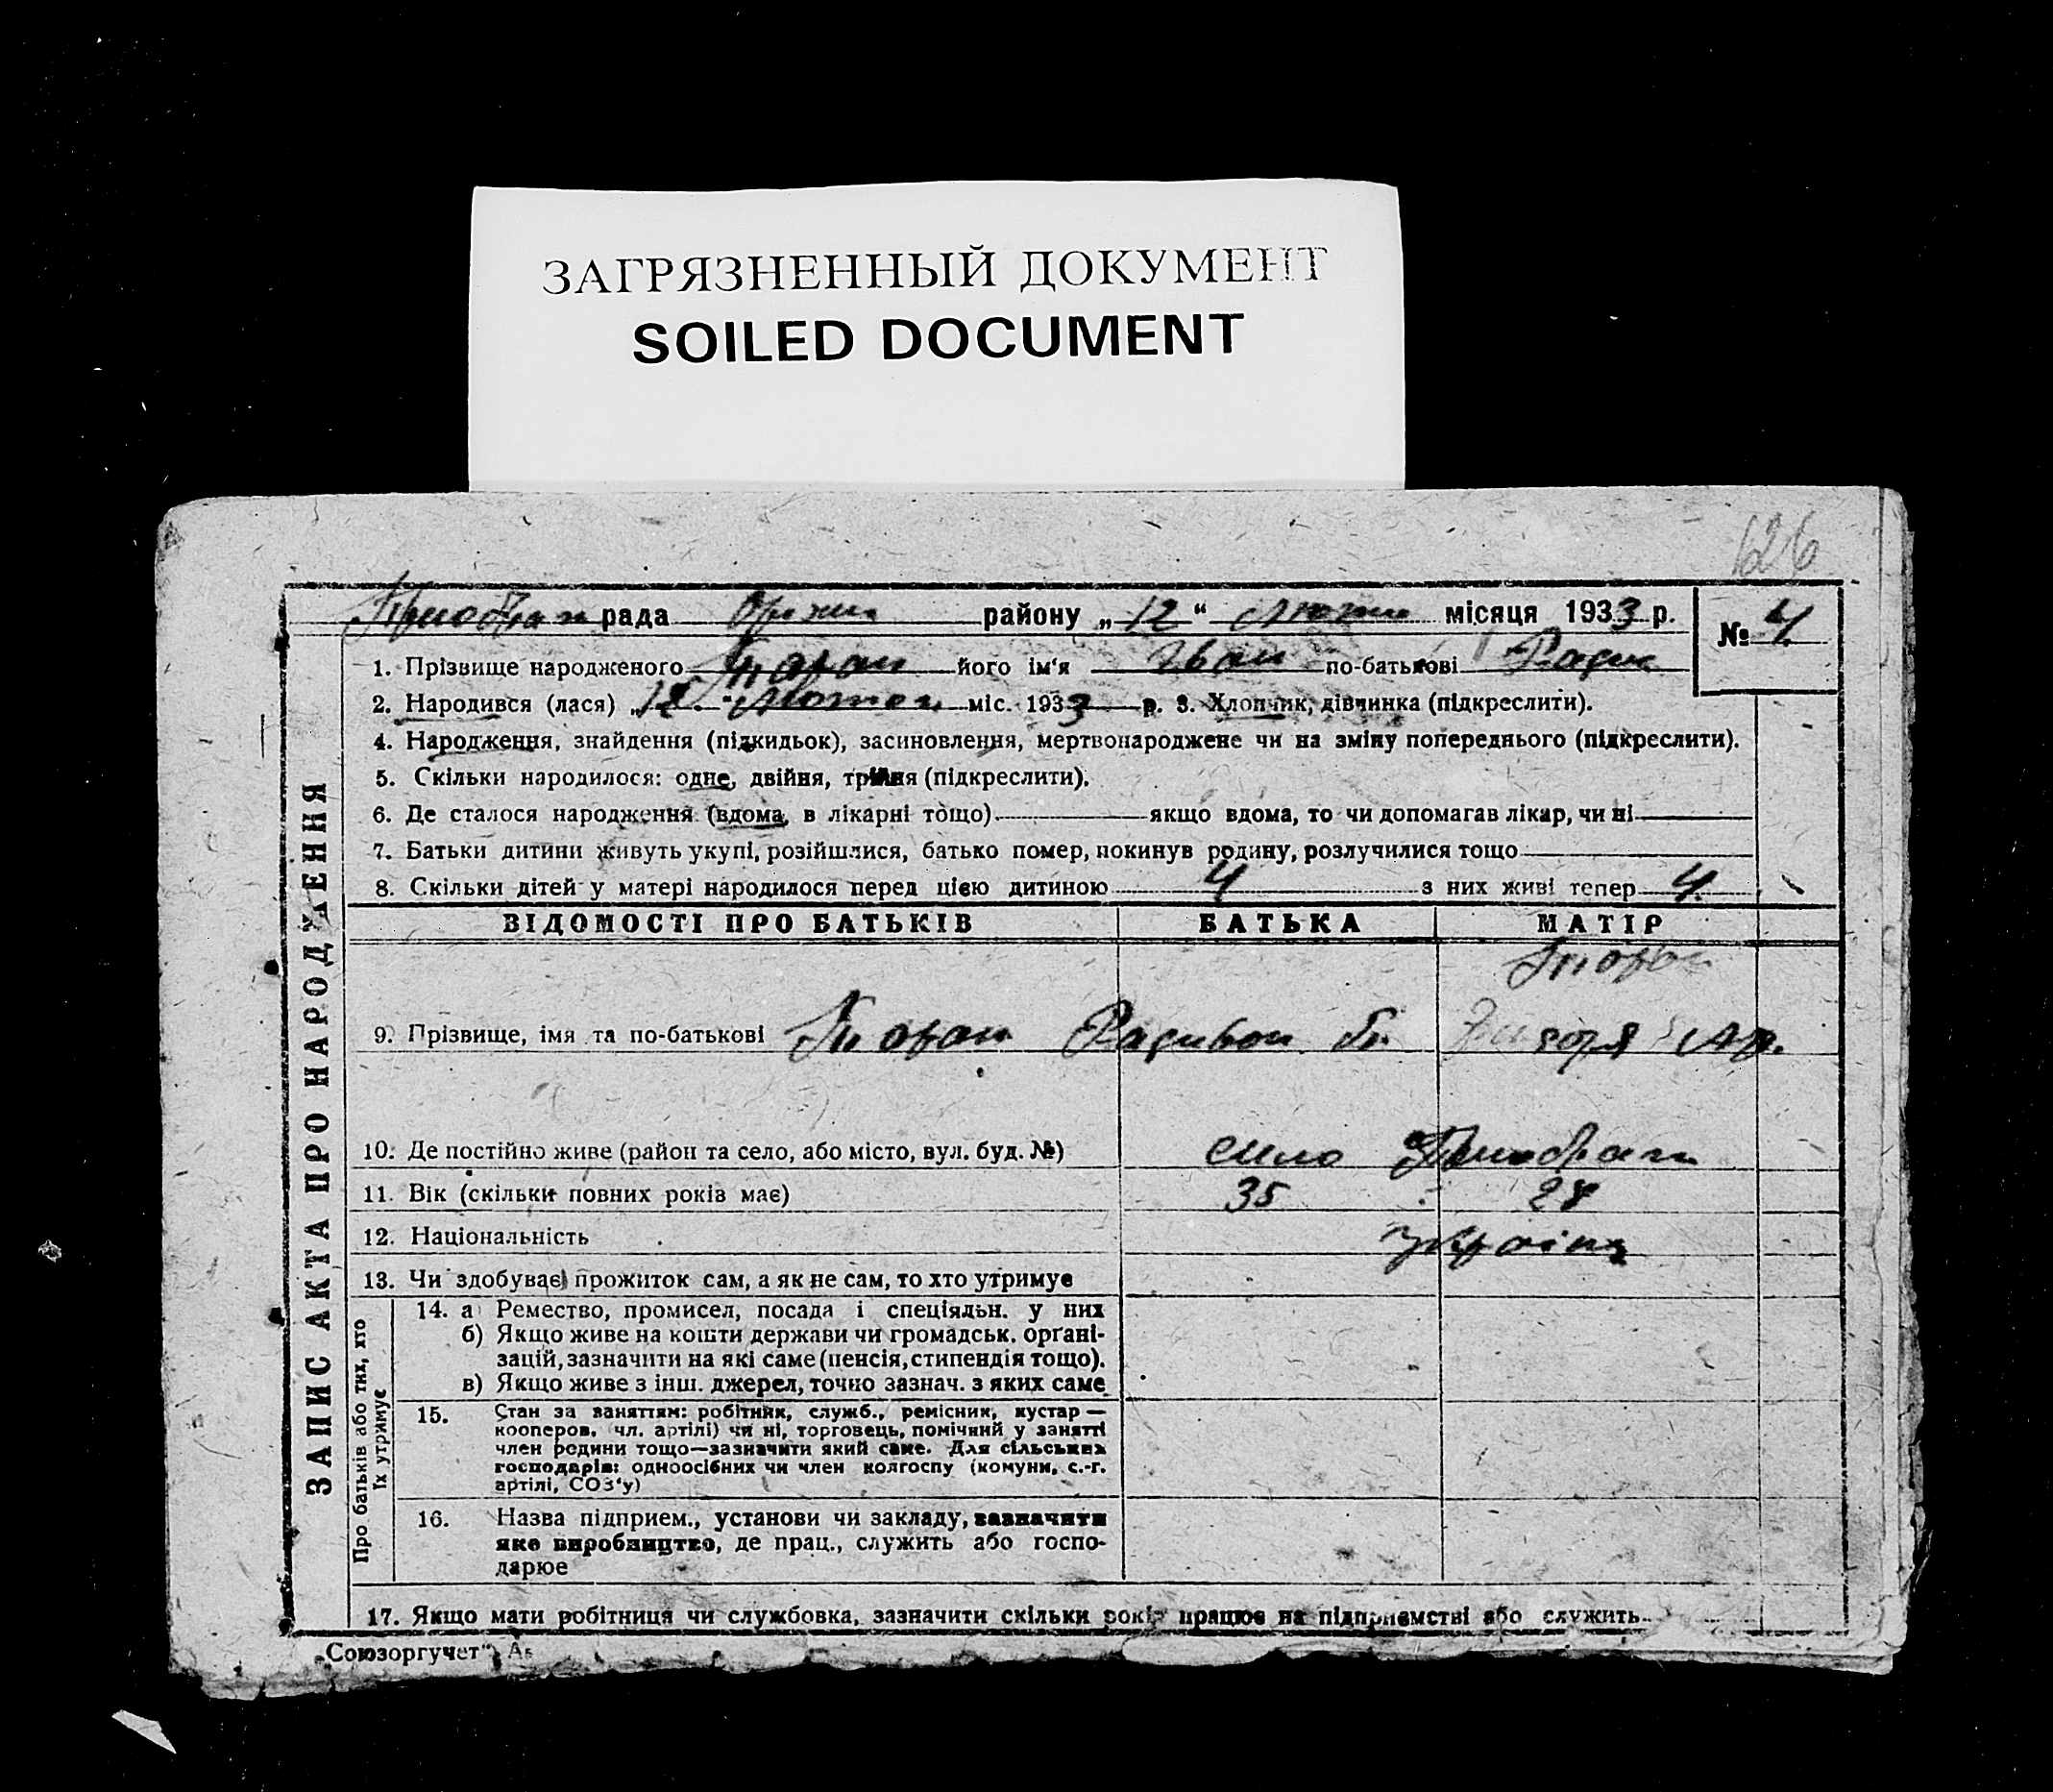 ЗАГРЯЗНЕННЫЙ ДОКУМЕНТ
SOILED DOCUMENT
626
рада Оржиц району „12“ Лютого місяця 1933 р.
№ 4
1. Прізвище народженого Таран його ім'я Іван по-батькові Радив
2. Народився (лася) „12“ Лютого міс. 1933 р. 3. Хлопчик, дівчинка (підкреслити).
4. Народження, знайдення (підкидьок), засиновлення, мертвонароджене чи на зміну попереднього (підкреслити).
5. Скільки народилося: одне, двійня, трійня (підкреслити).
6. Де сталося народження (вдома, в лікарні тощо) якщо вдома, то чи допомагав лікар, чи ні
7. Батьки дитини живуть укупі, розійшлися, батько помер, покинув родину, розлучилися тощо
8. Скільки дітей у матері народилося перед цією дитиною 4 з них живі тепер 4.
ЗАПИС АКТА ПРО НАРОДЖЕННЯ
ВІДОМОСТІ ПРО БАТЬКІВ БАТЬКА МАТІР
Таран
9. Прізвище, імя та по-батькові Таран Радивон
10. Де постійно живе (район та село, або місто, вул. буд. №) село
11. Вік (скільки повних років має) 35 28
12. Національність україн
13. Чи здобуває прожиток сам, а як не сам, то хто утримує
Про батьків або тих, хто їх утримує
14. а Ремество, промисел, посада і спеціяльн. у них
б) Якщо живе на кошти держави чи громадськ. орґані-
зацій, зазначити на які саме (пенсія, стипендія тощо).
в) Якщо живе з інш. джерел, точно зазнач. з яких саме
15. Стан за заняттям: робітник, служб., ремісник, кустар—
кооперов. чл. артілі) чи ні, торговець, помічний у занятті
член родини тощо—зазначити який саме. Для сільських
господарів: одноосібних чи член колгоспу (комуни, с.-г.
артілі, СОЗ'у)
16. Назва підприєм., установи чи закладу, зазначити
яке виробництво, де прац., служить або госпо-
дарює
17. Якщо мати робітниця чи службовка, зазначити скільки років працює на підприємстві або служить
„Союзоргучет“